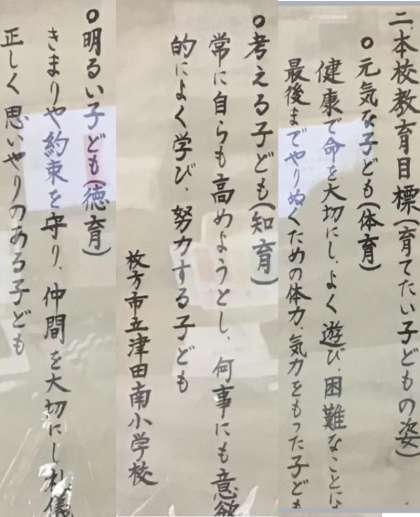 二.本校教育目標(育てたい子どもの姿)
○元気な子ども(体育)
健康で命を大切にし、よく遊び、困難なことに
最後までやりぬくための体力、気力をもった子ども
○考える子ども(知育)
常に自らも高めようとし、何事にも意欲
的によく学び、努力する子ども
枚方市立津田南小学校
○明るい子ども(徳育)
きまりや約束を守り、仲間を大切にし礼儀
正しく思いやりのある子ども